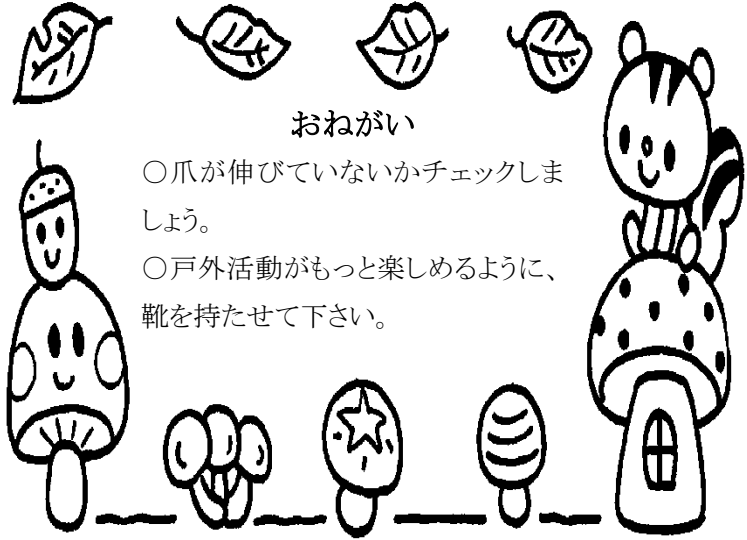 おねがい
〇爪が伸びていないかチェックしま
しょう。
〇戸外活動がもっと楽しめるように、
靴を持たせて下さい。